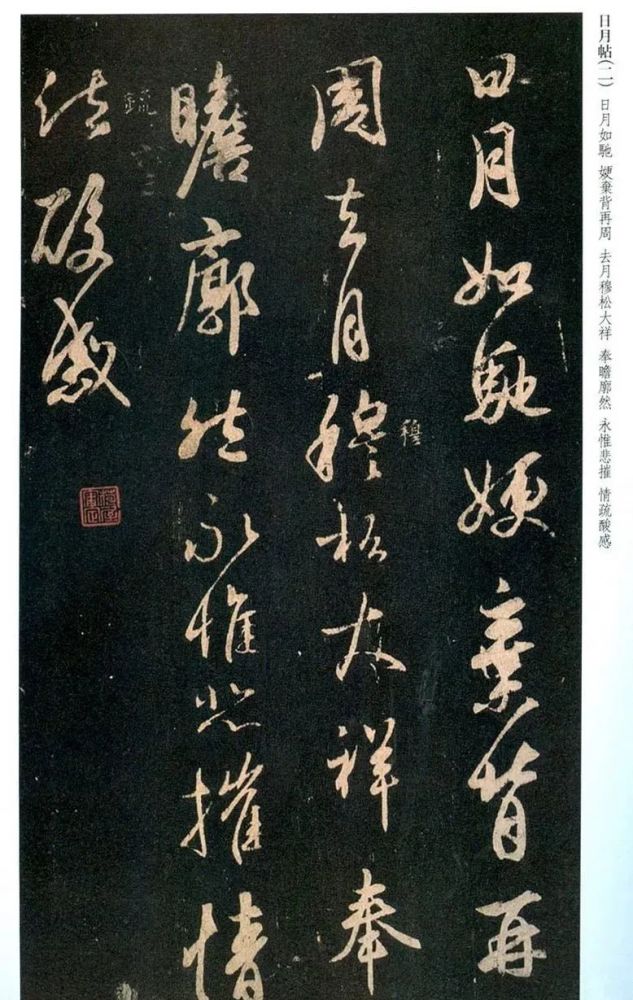 日月帖(二) 日月如馳 㛐棄背再周 去月穆松大祥 奉瞻廓然 永惟悲摧 情疏酸感
日月如馳㛐棄背再
周去月穆松大祥奉
穆
瞻廓然永惟悲摧情
疏
疏酸感